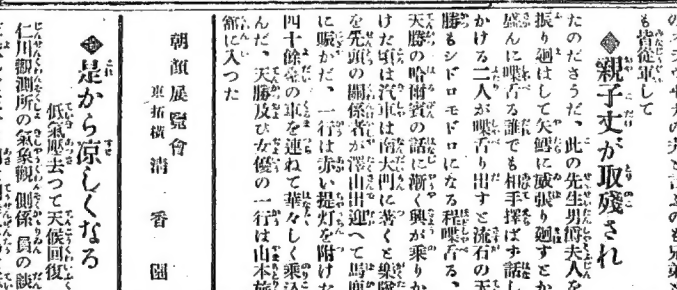 も皆從軍して
◆親子丈が取殘され
たのださうだ、此の先生男爵夫人を
振り廻はして矢鱈に威張り廻すとか
盛んに喋舌る誰でも相手擇ばず話し
かける二人が喋舌り出すと流石の天
勝もシドロモドロになる程喋舌る、
天勝の哈爾賓の話に漸く興が乘りか
けた頃は汽車は南大門に著くと樂隊
を先頭の關係者が澤山出迎へて馬鹿
に賑かだ、一行は赤い提灯を附けた
四十餘臺の車を連ねて華々しく乘込
んだ、天勝及び女優の一行は山本旅
館に入つた
朝顔展覧會
東拓橫 清香園
◆是から凉しくなる
低氣壓去つて天候回復
仁川觀測所の氣象觀側係員の談